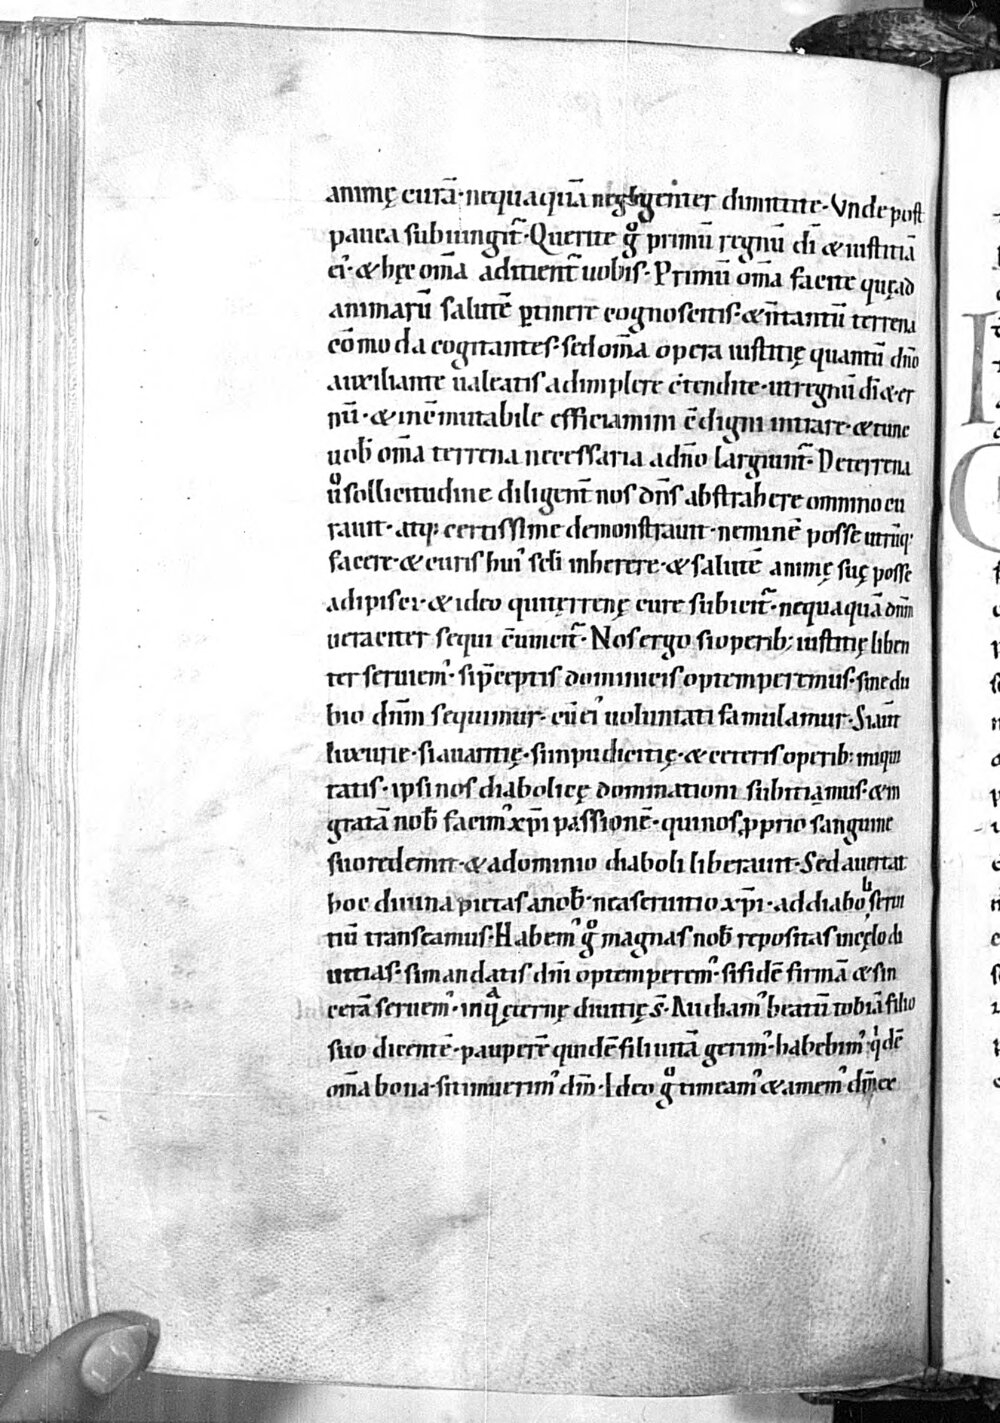 animę curā·nequaquā neglygenter dimittite·Vnde post
pauca subiungit̄·Querite gͦ primū regnū di̅ & iustitiā
ei᾽·& hęc om̅a adicient̄ uobis·Primū om̅a facite quęad
animarū salutē ꝑtinere cognoscitis·& n̅ tantū terrena
cōmoda cogitantes·sed om̅a opera iustitię quantū dn̅o
auxiliante ualeatis adimplere c̄tendite·ut regnū di̅ & ęt̄
nū·& inc̄mutabile efficiamini c̄digni intrare·& tunc
uob̅ om̅a terrena necessaria a dn̅o largiunt̄·De terrena
uͦ sollicitudine diligent̄ nos dn̅s abstrahere omnino cu
rauit·atq; certissime demonstrauit·neminē posse utrūq;
facere·& curis hui᾽ scl̅i inherere·& salutē animę suę posse
adipisci·& ideo qui tęrrenę cure subicit̄·nequaquā dn̅m
ueraciter sequi c̄uincit̄·Nos ergo si operib; iustitię liben
ter seruiem᾽·si p̄ceptis dominicis optemperemus·sine du
bio dn̅m sequimur·cū ei᾽ uoluntati famulamur·Si aut̄
luxurie·si auaritię·si inpudicitię·& ceteris operib; iniqui
tatis·ipsi nos diabolicę dominationi subitiamus·& in
gratā nob̅ facim᾽ xp̅i passionē·qui nos ꝓprio sanguine
suo redemit·& a dominio diaboli liberauit·Sed auertat
hoc diuina pietas a nob̅·ne a seruitio xp̅i·ad diaboli serui
tiū transeamus·Habem᾽ gͦ magnas nob̅ repositas in cęlo di
uitias·si mandatis dn̅i optemperem᾽·si fidē firmā & sin
cerā seruem᾽·in qua ęternę diuitię s̅·Audiam᾽ beatū tobiā filio
suo dicentē·pauperē quidē fili uitā gerim᾽·habebim᾽ qͥdē
om̅a bona·si timuerim᾽ dm̅·Ideo gͦ timeam᾽ & amem᾽ dm̅ ce